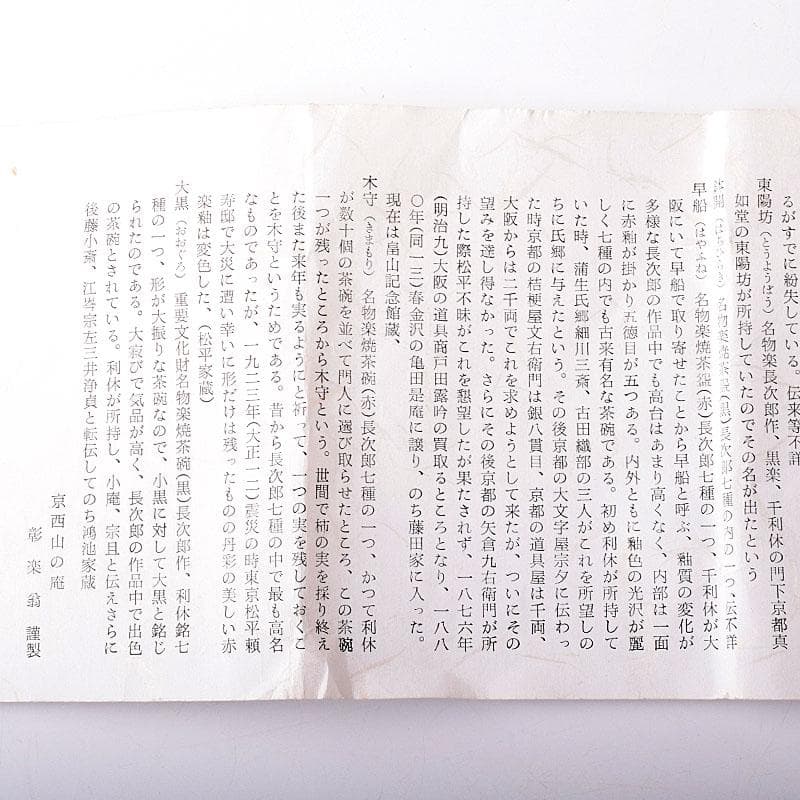 るがすでに紛失している。伝来等不詳
東陽坊(とうようぼう)名物楽長次郎作、黒楽、千利休の門下京都真
如堂の東陽坊が所持していたのでその名が出たという
(はちひらき)名物楽焼茶盌(黒)長次郎七種の内の一つ、伝不詳
早船(はやふね)名物楽焼茶盌(赤)長次郎七種の一つ、千利休が大
阪にいて早船で取り寄せたことから早船と呼ぶ、釉質の変化が
多様な長次郎の作品中でも高台はあまり高くなく、内部は一面
に赤釉が掛かり五徳目が五つある。内外ともに釉色の光沢が麗
しく七種の内でも古来有名な茶碗である。初め利休が所持して
いた時、蒲生氏郷細川三斎、古田織部の三人がこれを所望しの
ちに氏郷に与えたという。その後京都の大文字屋宗夕に伝わっ
た時京都の桔梗屋文右衛門は銀八貫目、京都の道具屋は千両、
大阪からは二千両でこれを求めようとして来たが、ついにその
望みを達し得なかった。さらにその後京都の矢倉九右衛門が所
持した際松平不昧がこれを懇望したが果たされず、一八七六年
(明治九)大阪の道具商戸田露吟の買取るところとなり、一八八
〇年(同一三)春金沢の亀田是庵に譲り、のち藤田家に入った。
現在は畠山記念館蔵、
木守(きまもり)名物楽焼茶碗(赤)長次郎七種の一つ、かつて利休
が数十個の茶碗を並べて門人に選び取らせたところ、この茶碗
一つが残ったところから木守という。世間で柿の実を採り終え
た後また来年も実るようにと祈って、一つの実を残しておくこ
とを木守というためである。昔から長次郎七種の中で最も高名
なものであったが、一九二三年(大正一二)震災の時東京松平頼
寿邸で大災に遭い幸いに形だけは残ったものの丹彩の美しい赤
楽釉は変色した、(松平家蔵)
大黒(おおぐろ)重要文化財名物楽焼茶碗(黒)長次郎作、利休銘七
種の一つ、形が大振りな茶碗なので、小黒に対して大黒と銘じ
られたのである。大寂びで気品が高く、長次郎の作品中で出色
の茶碗とされている。利休が所持し、小庵、宗旦と伝えさらに
後藤小斎、江岑宗左三井浄貞と転伝してのち鴻池家蔵
京西山の庵
彰楽翁謹製